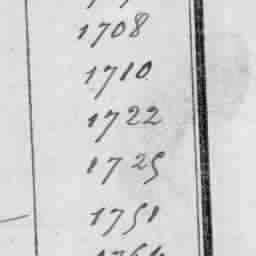 1708
1710
1722
1725
1751